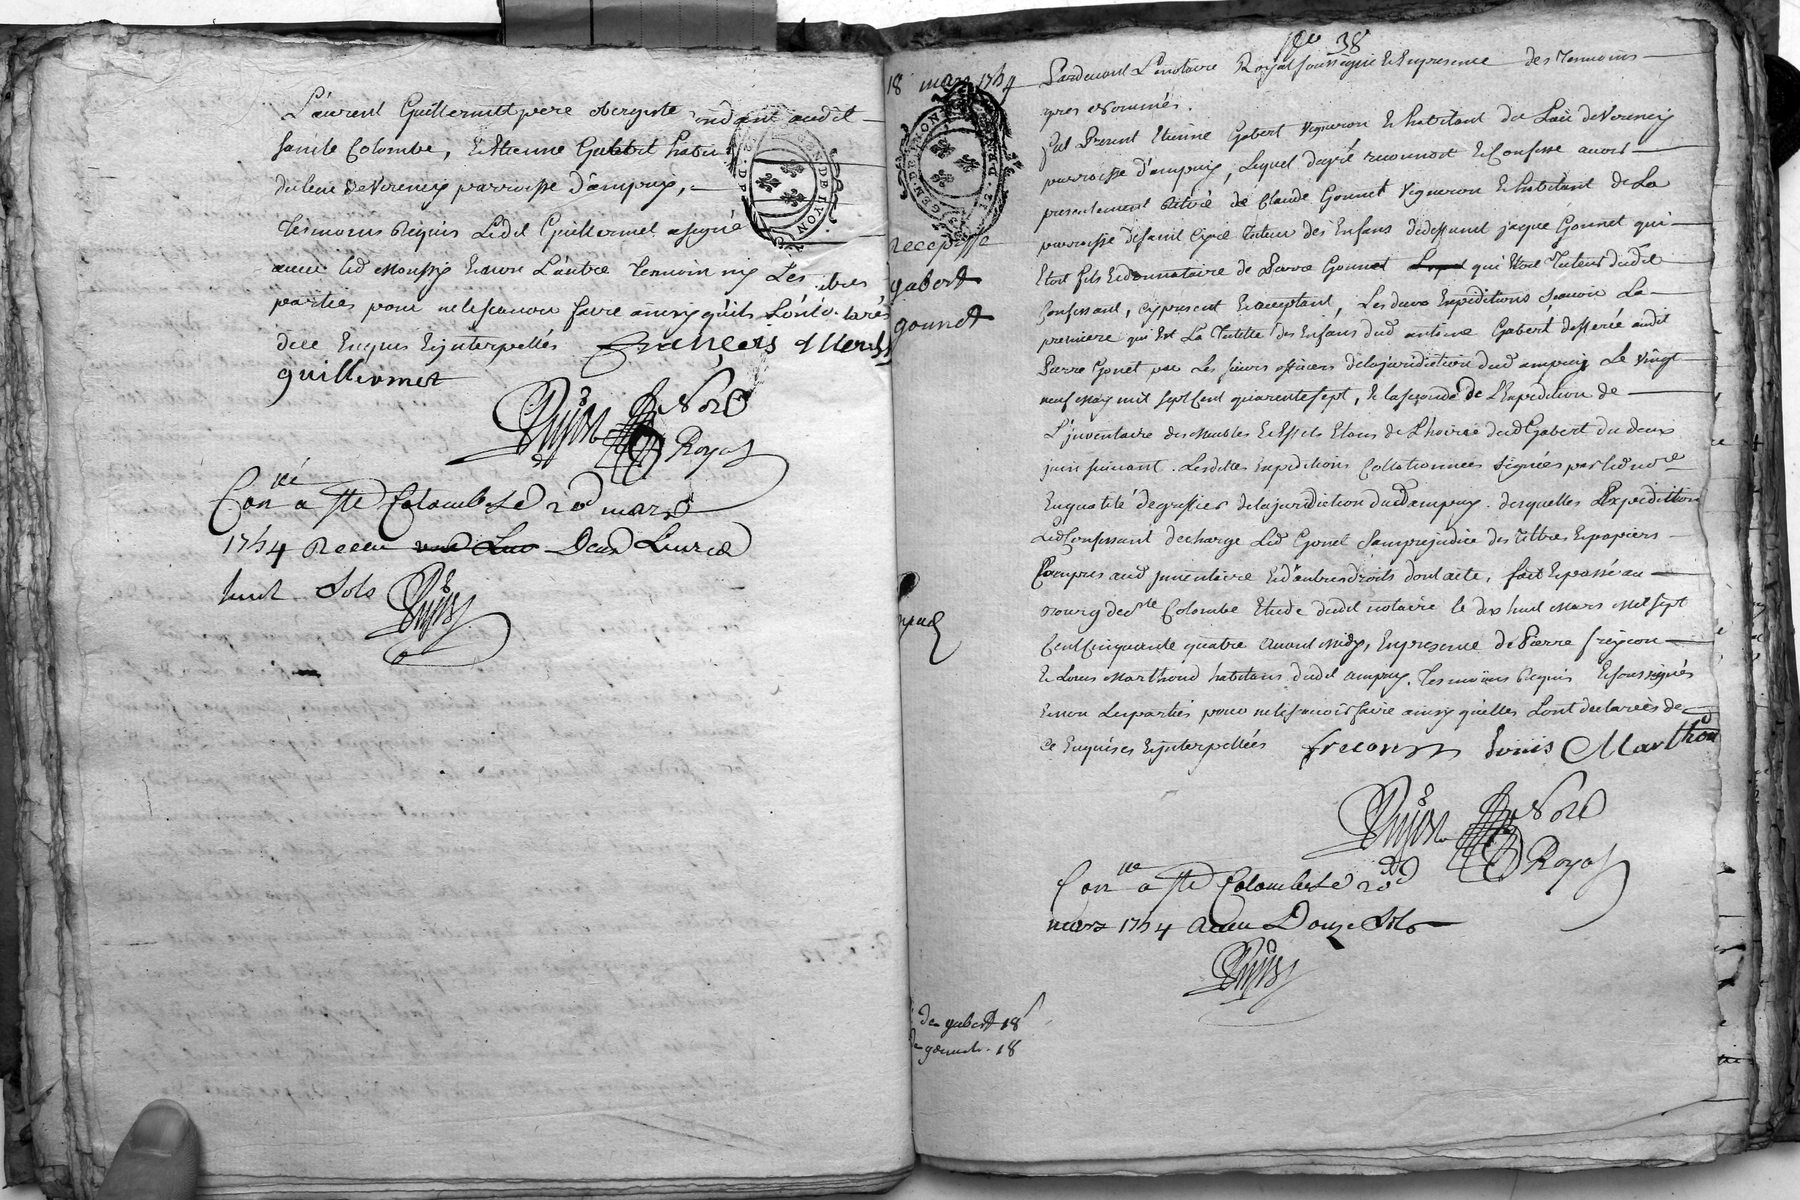 Laurent Guillermet pere obergiste audit
sainte Colombe, & Etienne Gabert habit
du lieu de Vereney parroisse d'ampuis,
Tesmoins Requis Ledit Guillermet a signé
avec led Moussy & non L'autre Temoin ny Les
parties pour ne le scavoir faire ainsy qu'ils L'ont
de ce Enquis & interpellés francois
guillermet
Not
Royal
Con a Ste Colombe Le 20 mars
1754 Receu Deux Livres
huit sols
38
18 mars 1754
recepisse
gabert
gonnet
Pardevant Le notaire Royal soussigné & En presence des Temoins
apres nommés.
fut Present Etienne Gabert vigneron & habitant du Lieu de Vereney
parroisse d'ampuis, Lequel de gré reconnoit & Confesse avoir
presentement Retiré de Claude Gonnet vigneron & habitant de La
parroisse de saint Cyr Tuteur des Enfans de deffunt jacque Gonnet qui
Etoit fils & donnataire de Pierre Gonnet qui Etoit Tuteur dudit
Confessant, cy present & acceptant, Les deux Expeditions scavoir La
premiere qui Est La Tutelle des Enfans dud antoine Gabert defferée audit
Pierre Gonet par Les sieurs officiers de la juridiction dud ampuis Le vingt
neuf may mil sept Cent quarente sept, & la seconde de L'Expedition de
L'inventaire des Meubles & Effets Etans de L'hoirie dud Gabert du deux
juin suivant. Lesdittes Expeditions Collationnees signées par led no.re
En qualité de greffier de la juridiction dud ampuis. desquelles Expedition
Led Confessant decharge Led Gonet sans prejudice des Titres & papiers
Compris aud inventaire & d'autres droits dont acte, fait & passé au
bourg de ste Colombe Etude dudit notaire le dix huit Mars Mil sept
Cent Cinquante quatre avant midy, En presence de Pierre frejcon
& Louis Marthoud habitans dudit ampuis. Tesmoins Requis & soussignés
& non Les parties pour ne le scavoir faire ainsy qu'elles L'ont declarées de
ce Enquises & interpellées frecon Louis Marthoud
Not
Royal
Con a Ste Colombe Le 20
mars 1754 Receu Douze sols
de gabert 18
de gonnet. 18